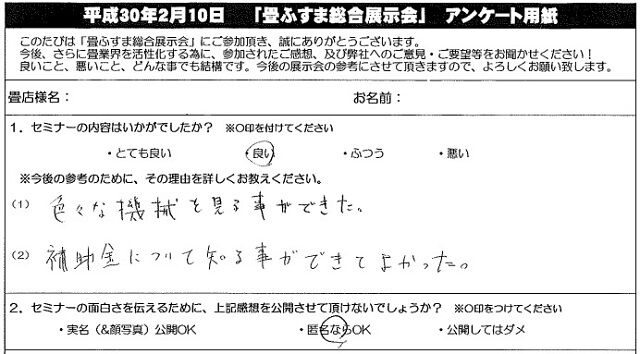 平成30年2月10日 「畳ふすま総合展示会」 アンケート用紙
このたびは「畳ふすま総合展示会」にご参加頂き、誠にありがとうございます。
今後、さらに畳業界を活性化する為に、参加されたご感想、及び弊社へのご意見・ご要望等をお聞かせください！
良いこと、悪いこと、どんな事でも結構です。今後の展示会の参考にさせて頂きますので、よろしくお願い致します。
畳店様名： お名前：
1．セミナーの内容はいかがでしたか？ ※○印を付けてください
・とても良い ・良い ・ふつう ・悪い
※今後の参考のために、その理由を詳しくお教えください。
(1) 色々な機械を見る事ができた。
(2) 補助金について知る事ができてよかった。
2．セミナーの面白さを伝えるために、上記感想を公開させて頂けないでしょうか？ ※○印をつけてください
・実名（&顔写真）公開OK ・匿名ならOK ・公開してはダメ